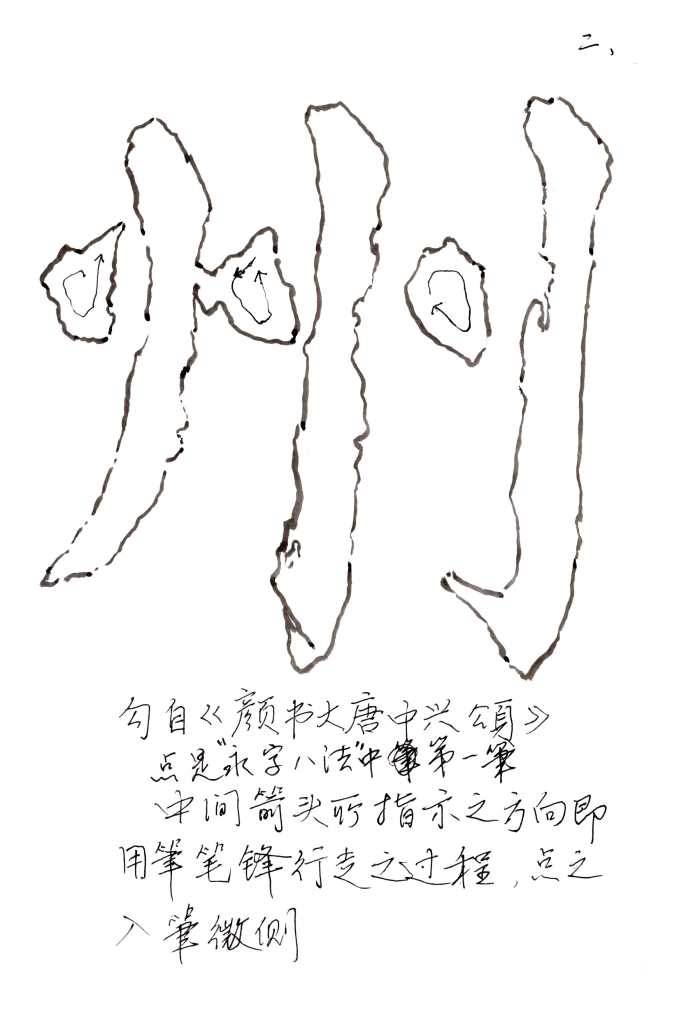 二、
州
勾自《颜书大唐中兴頌》
点是"永字八法"中第一筆
中间箭头所指示之方向即
用筆笔锋行走之过程,点之
入筆微侧